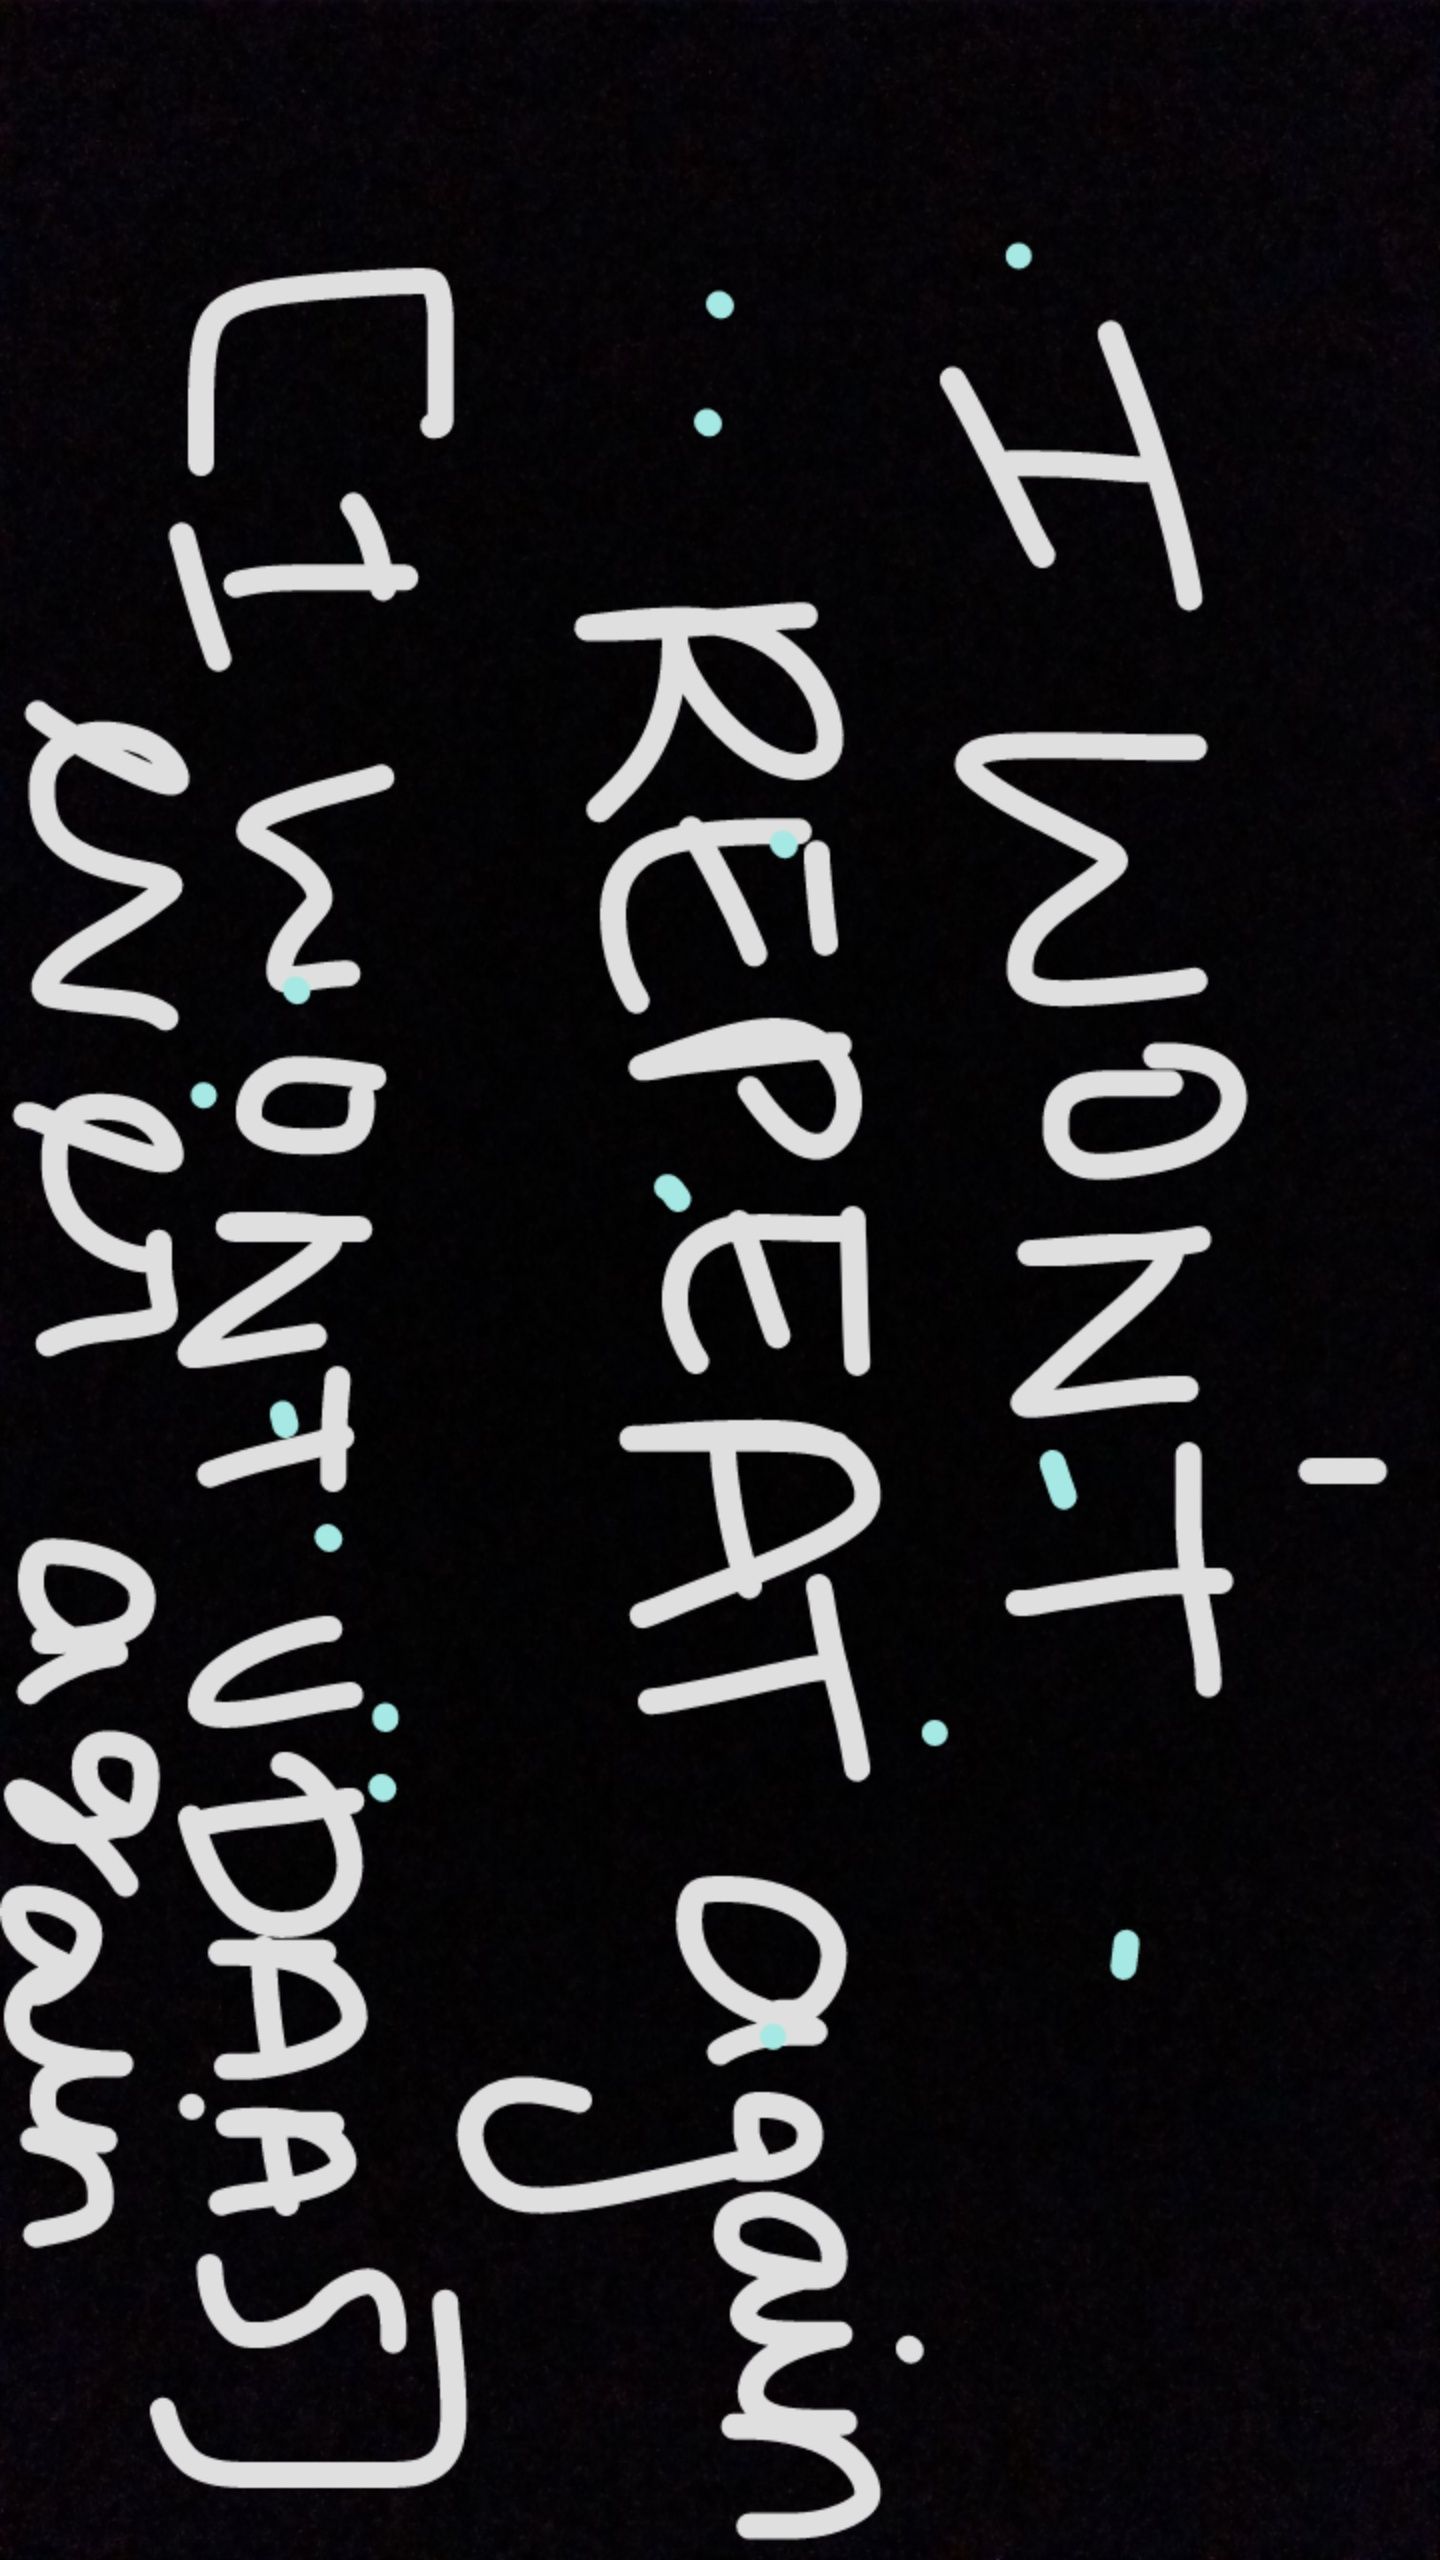 I WON'T
REPEAT again
[I WONT UDAAS]
ever again